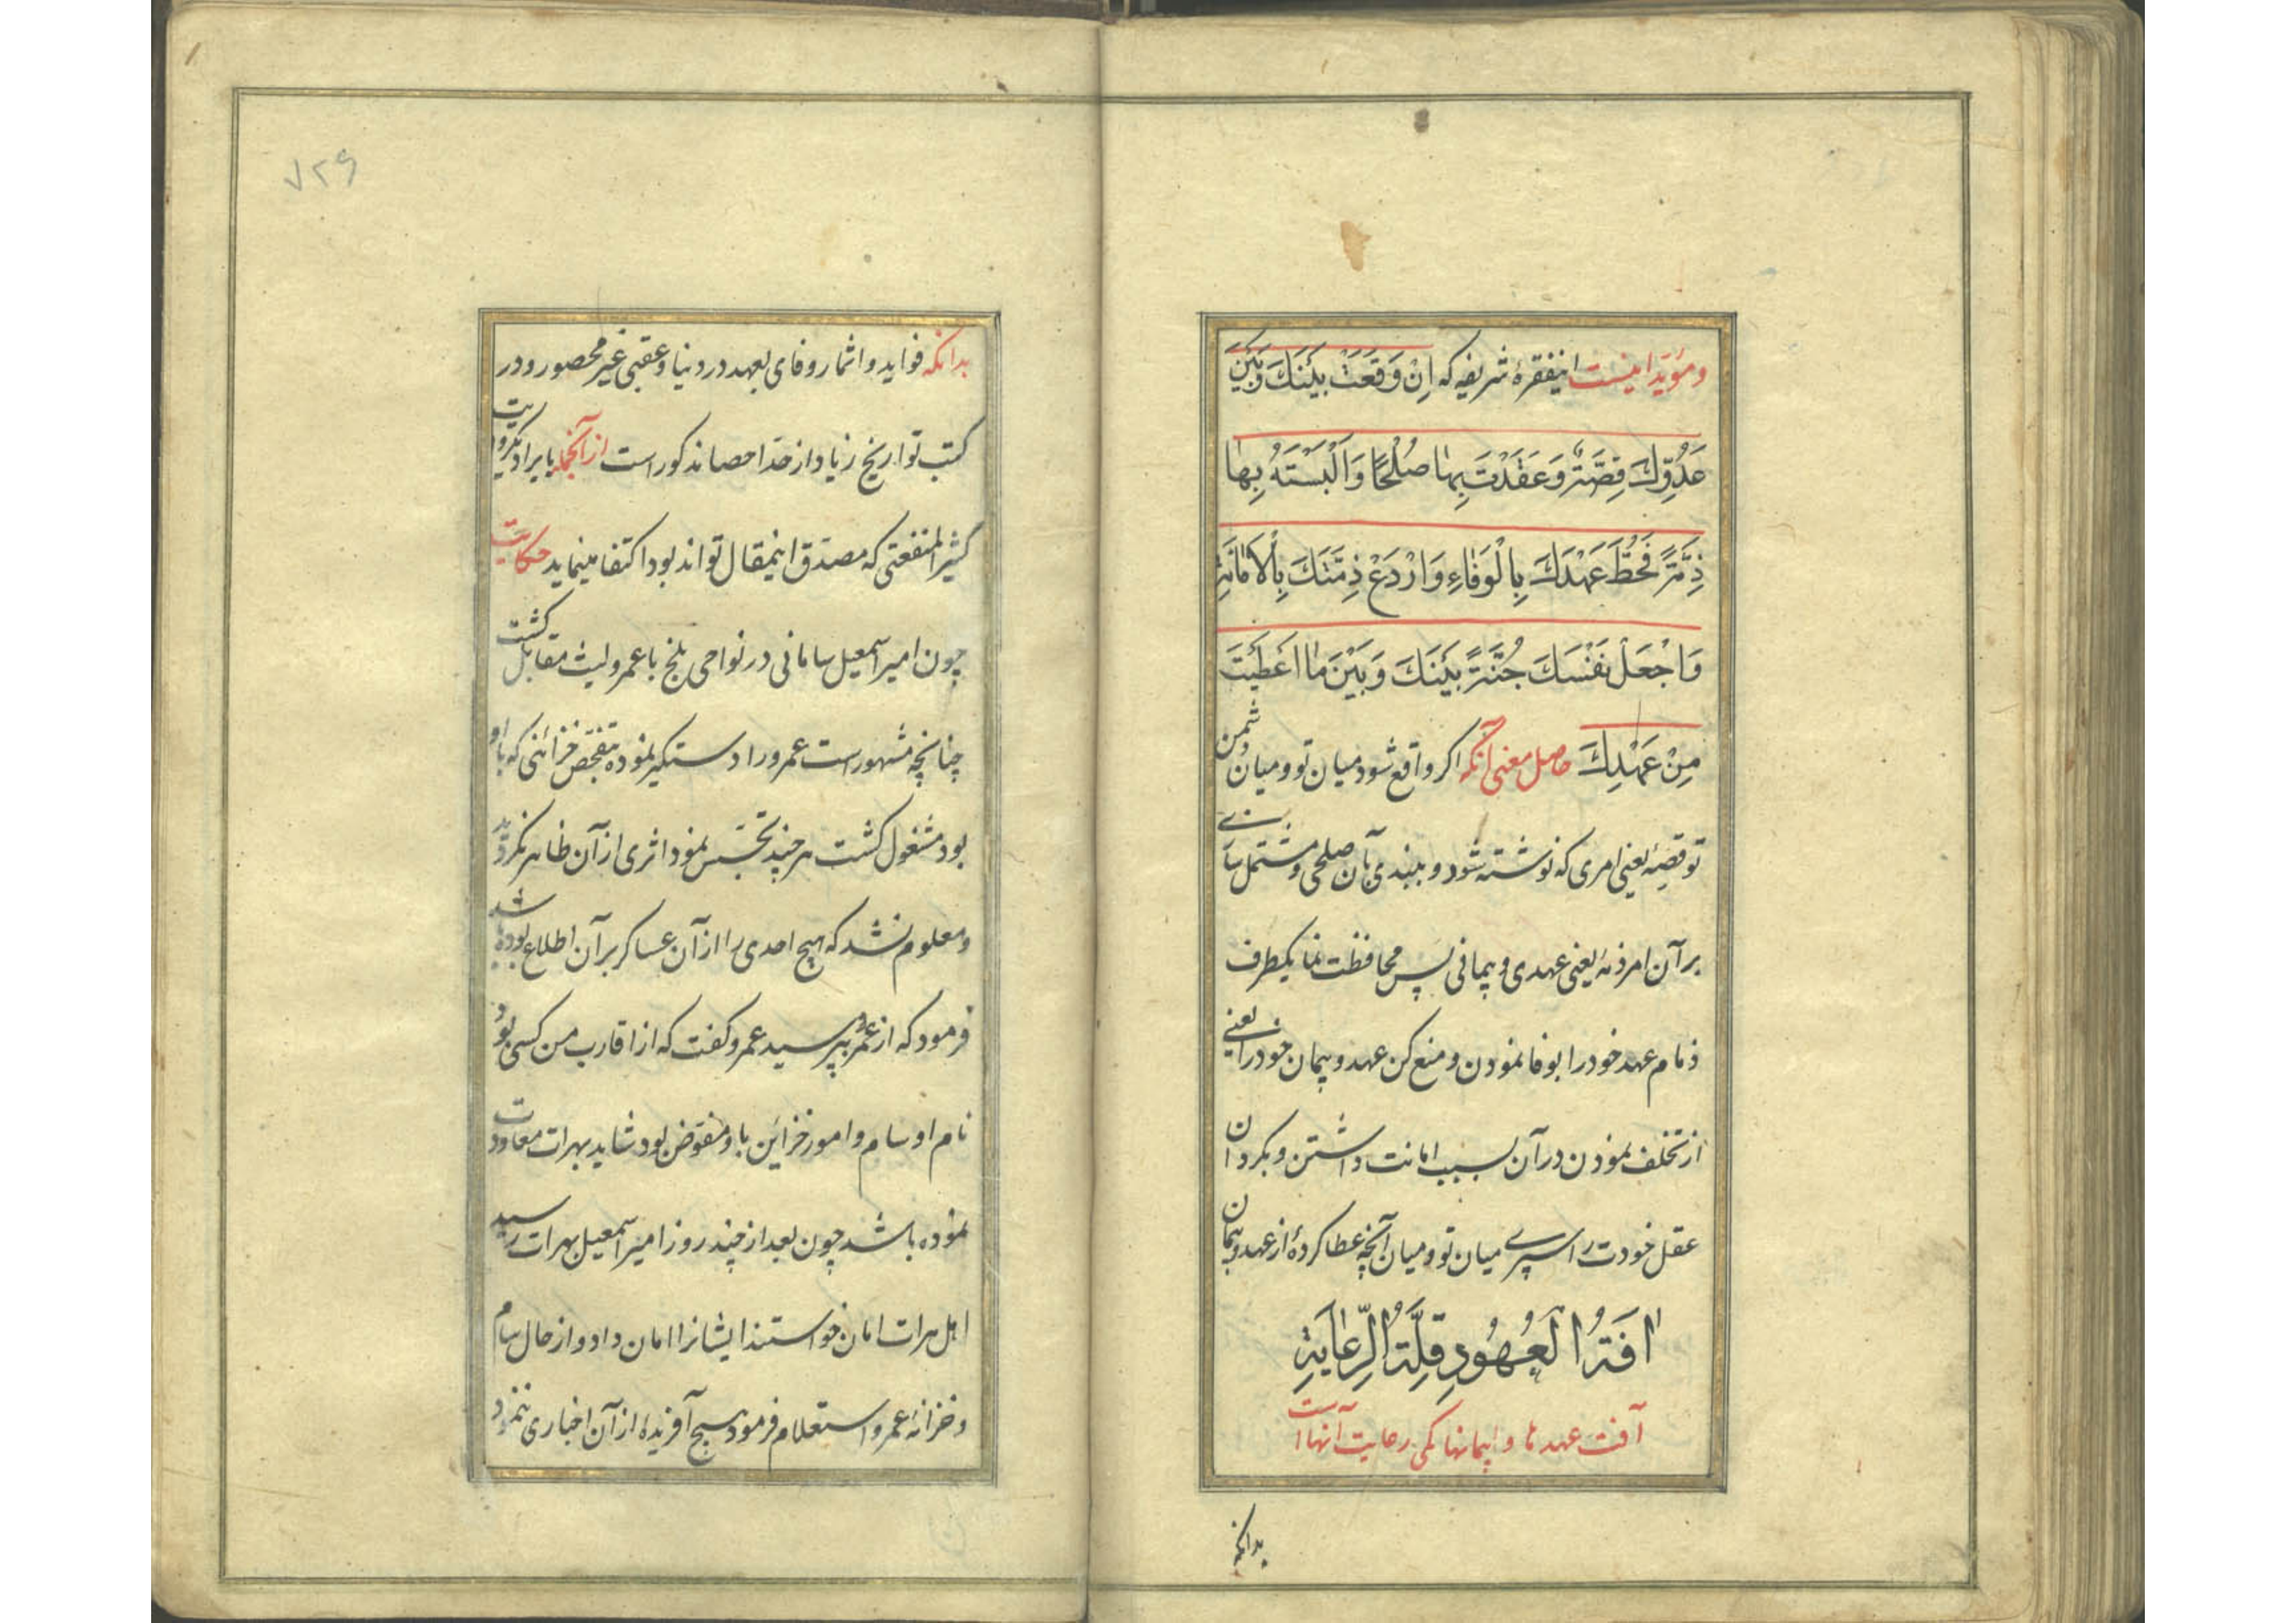 ومؤید اینست اینفقرهٔ شریفه که اِنْ وَقَعَتْ بَیْنَكَ وَبَیْنَ
عَدُوِّكَ قِصَّةٌ وَعَقَدْتَ بِهٰا صُلْحًا وَاَلْبَسْتَهُ بِهٰا
ذِمَّةً فَحُطَّ عَهْدَكَ بِالْوَفٰاءِ وَارْدَعْ ذِمَّتَكَ بِالْاَمٰانَةِ
وَاجْعَلْ نَفْسَكَ جُنَّةً بَیْنَكَ وَبَیْنَ مٰا اَعْطَیْتَ
مِنْ عَهْدِكَ حاصل معنی آنکه اکر واقع شود میان تو و میان دشمن
تو قصهٔ یعنی امری که نوشته شود و ببندی بآن صلحی و مشتمل سازی
بر آن امر ذمهٔ یعنی عهدی و پیمانی پس محافظت نما یکطرف
ذمام عهد خود را بوفا نمودن و منع کن عهد و پیمان خود را یعنی
از تخلف نمودن در آن بسبب امانت داشتن و بکردان
عقل خودت را سپری میان تو و میان آنچه عطا کردهٔ از عهد و پیمان
اٰفَةُ الْعُهُودِ قِلَّةُ الرِّعٰایَةِ
آفت عهدها و پیمانها کمی رعایت آنها است
بدانکه
۷۲۹
بدانکه فواید و اثمار وفای بعهد در دنیا و عقبی غیر محصور و در
کتب تواریخ زیاد از حد احصا مذکور است از آنجمله بایراد یکروایت
کثیر المنفعتی که مصدق اینمقال تواند بود اکتفا مینماید حکایت
چون امیر اسمعیل سامانی در نواحی بلخ با عمرو لیث مقابل کشت
چنانچه مشهور است عمرو را دستکیر نموده تفحص خزائنی که با او
بود مشغول کشت هر چند تجسس نمود اثری از آن ظاهر نکردید
و معلوم نشد که هیچ احدی را از آن عساکر بر آن اطلاع بوده باشد
فرمود که از عمرو بپرسید عمرو کفت که از اقارب من کسی بود
نام او سام و امور خزاین باو مفوض بود شاید بهرات معاودت
نموده باشد چون بعد از چند روز امیر اسمعیل بهرات رسید
اهل هرات امان خواستند ایشانرا امان داد و از حال سام
و خزانهٔ عمرو استعلام فرمود هیچ آفریدهٔ از آن اخباری ننمود